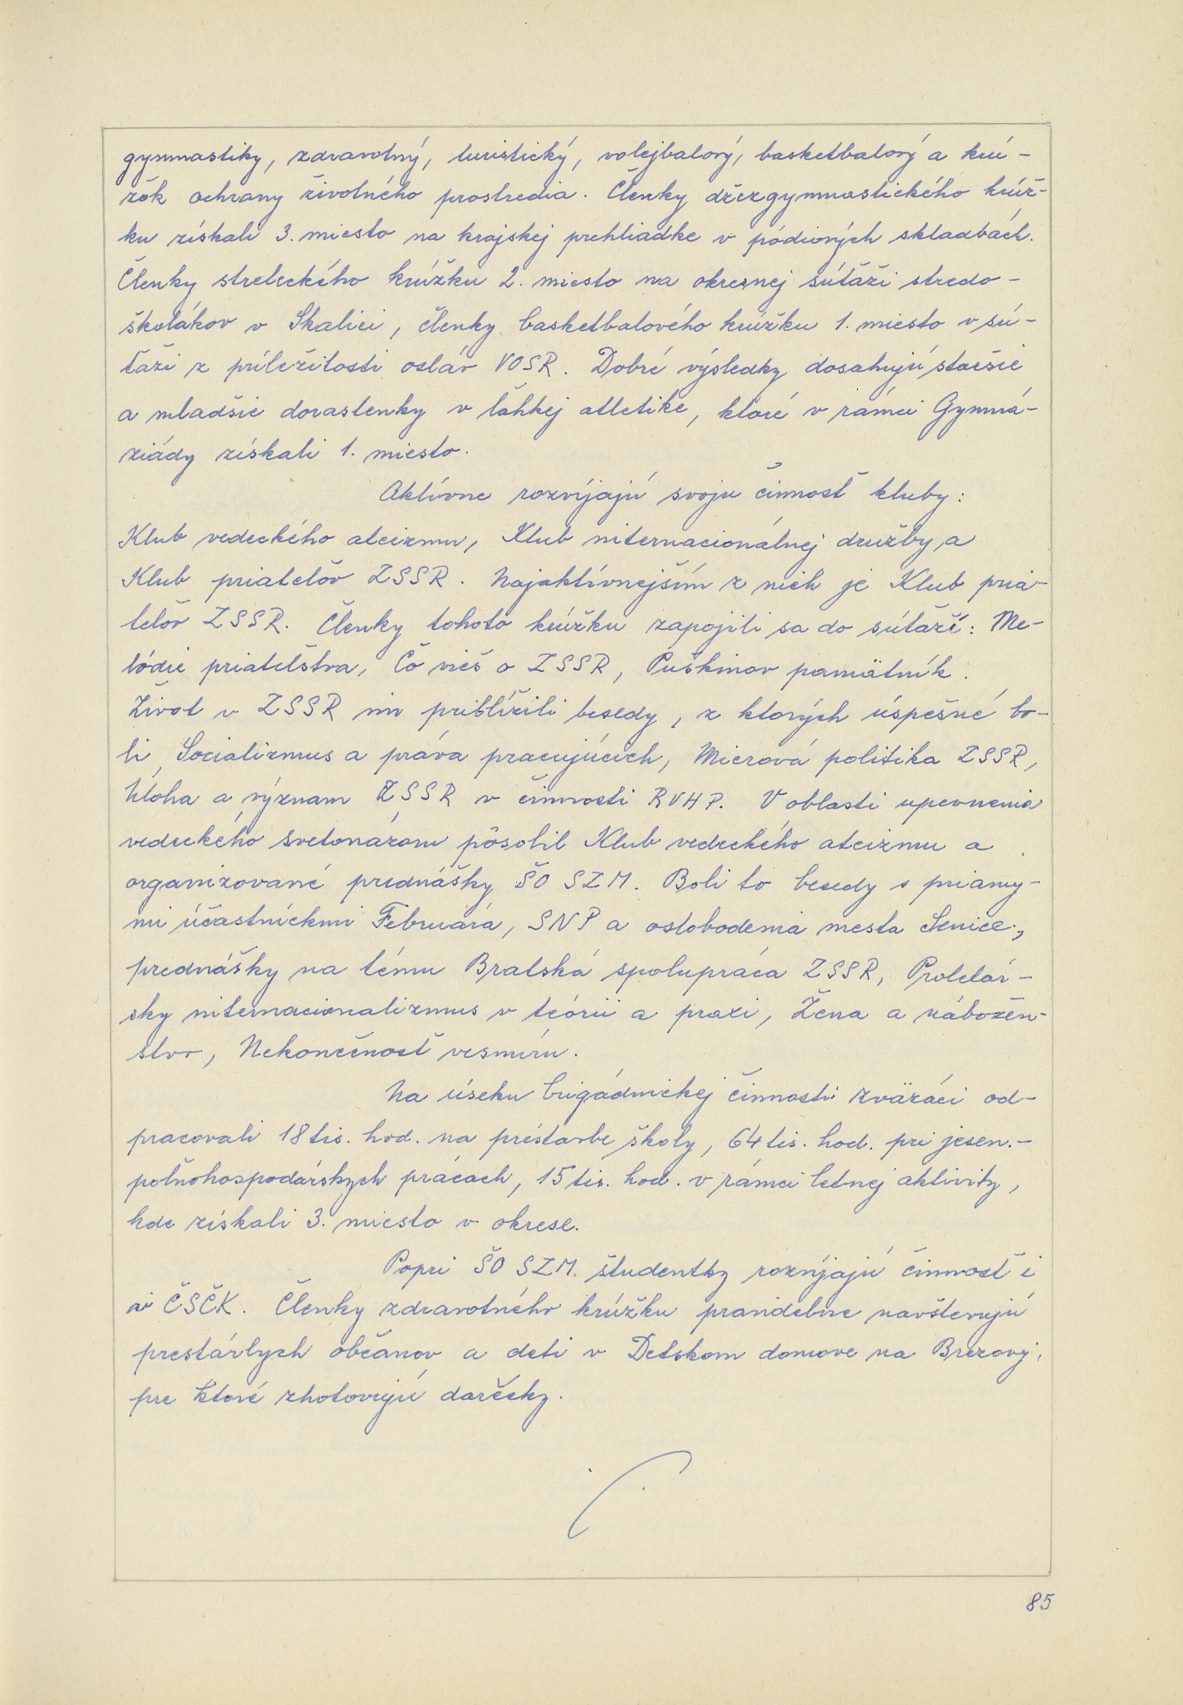 gymnastiky, zdravotný, turistický, volejbalový, basketbalový a krú-
žok ochrany životného prostredia. Členky džezgymnastického krúž-
ku získali 3. miesto na krajskej prehliadke v pódiových skladbách.
Členky streleckého krúžku 2. miesto na okresnej súťaži stredo-
školákov v Skalici, členky basketbalového krúžku 1. miesto v sú-
ťaži z príležitosti osláv VOSR. Dobré výsledky dosahujú staršie
a mladšie dorastenky v ľahkej atletike, ktoré v rámci Gymná-
ziády získali 1. miesto.
Aktívne rozvíjajú svoju činnosť kluby:
Klub vedeckého ateizmu, Klub internacionálnej družby a
Klub priateľov ZSSR. Najaktívnejším z nich je Klub pria-
teľov ZSSR. Členky tohoto krúžku zapojili sa do súťaží: Me-
lódie priateľstva, Čo vieš o ZSSR, Puškinov pamätník.
Život v ZSSR im priblížili besedy, z ktorých úspešné bo-
li Socializmus a práva pracujúcich, Mierová politika ZSSR,
Úloha a význam ZSSR v činnosti RVHP. V oblasti upevnenia
vedeckého svetonázoru pôsobil Klub vedeckého ateizmu a
organizované prednášky ŠO SZM. Boli to besedy s priamy-
mi účastníckmi Februára, SNP a oslobodenia mesta Senice,
prednášky na tému Bratská spolupráca ZSSR, Proletár-
sky internacionalizmus v teórii a praxi, Žena a nábožen-
stvo, Nekonečnosť vesmíru.
Na úseku brigádnickej činnosti zväzáci od-
pracovali 18 tis. hod. na prístavbe školy, 64 tis. hod. pri jesen.-
poľnohospodárskych prácach, 15 tis. hod. v rámci letnej aktivity,
kde získali 3. miesto v okrese.
Popri ŠO SZM študentky rozvíjajú činnosť i
vi ČSČK. Členky zdravotného krúžku pravidelne navštevujú
prestárlych občanov a deti v Detskom domove na Brezovej,
pre ktoré zhotovujú darčeky.
85